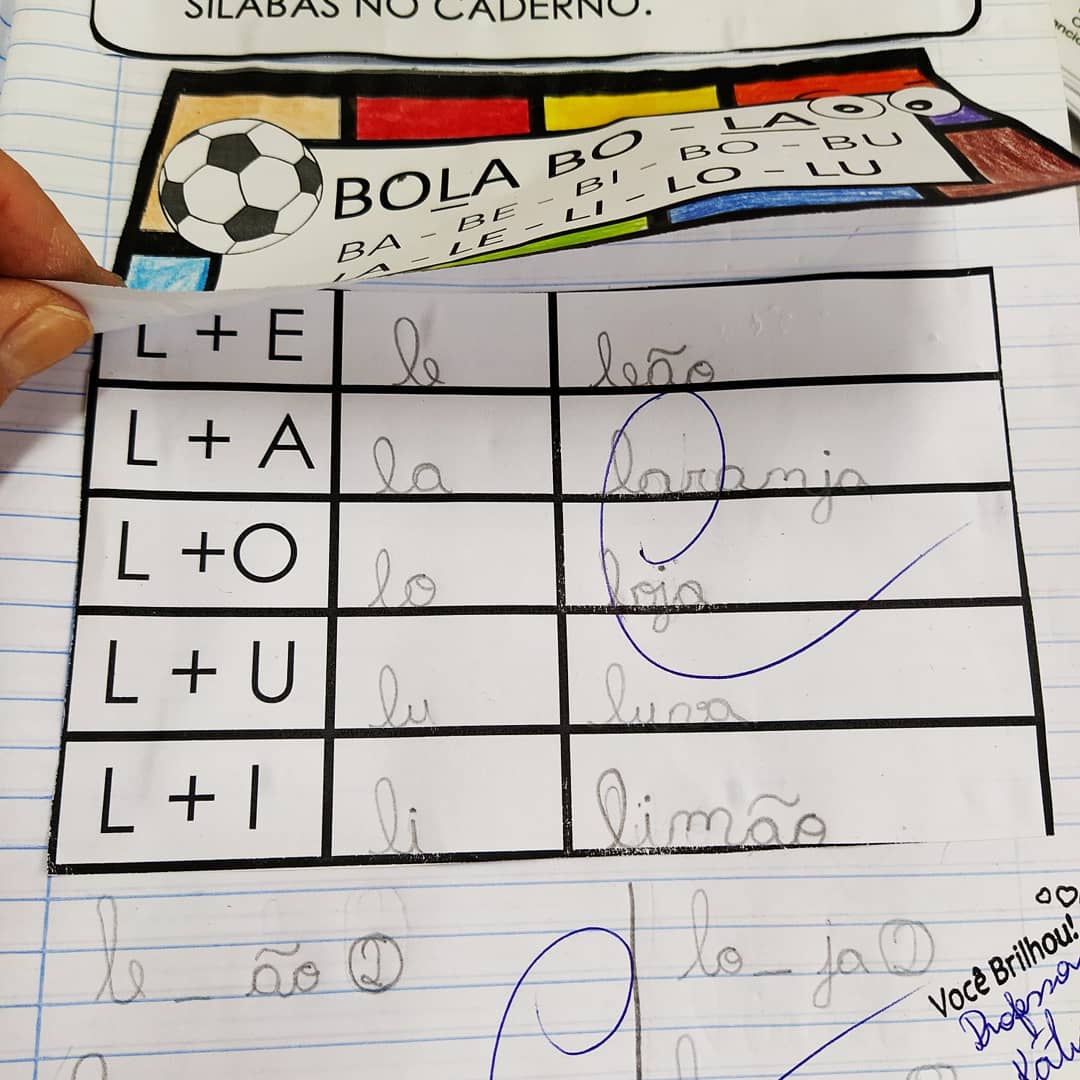 SÍLABAS NO CADERNO.
BOLA BO - LA
BA - BE - BI - BO - BU
LA - LE - LI - LO - LU
L + E le leão
L + A la laranja
L + O lo loja
L + U lu luva
L + I li limão
le - ão 2 lo - ja 2
Você Brilhou!
Professora